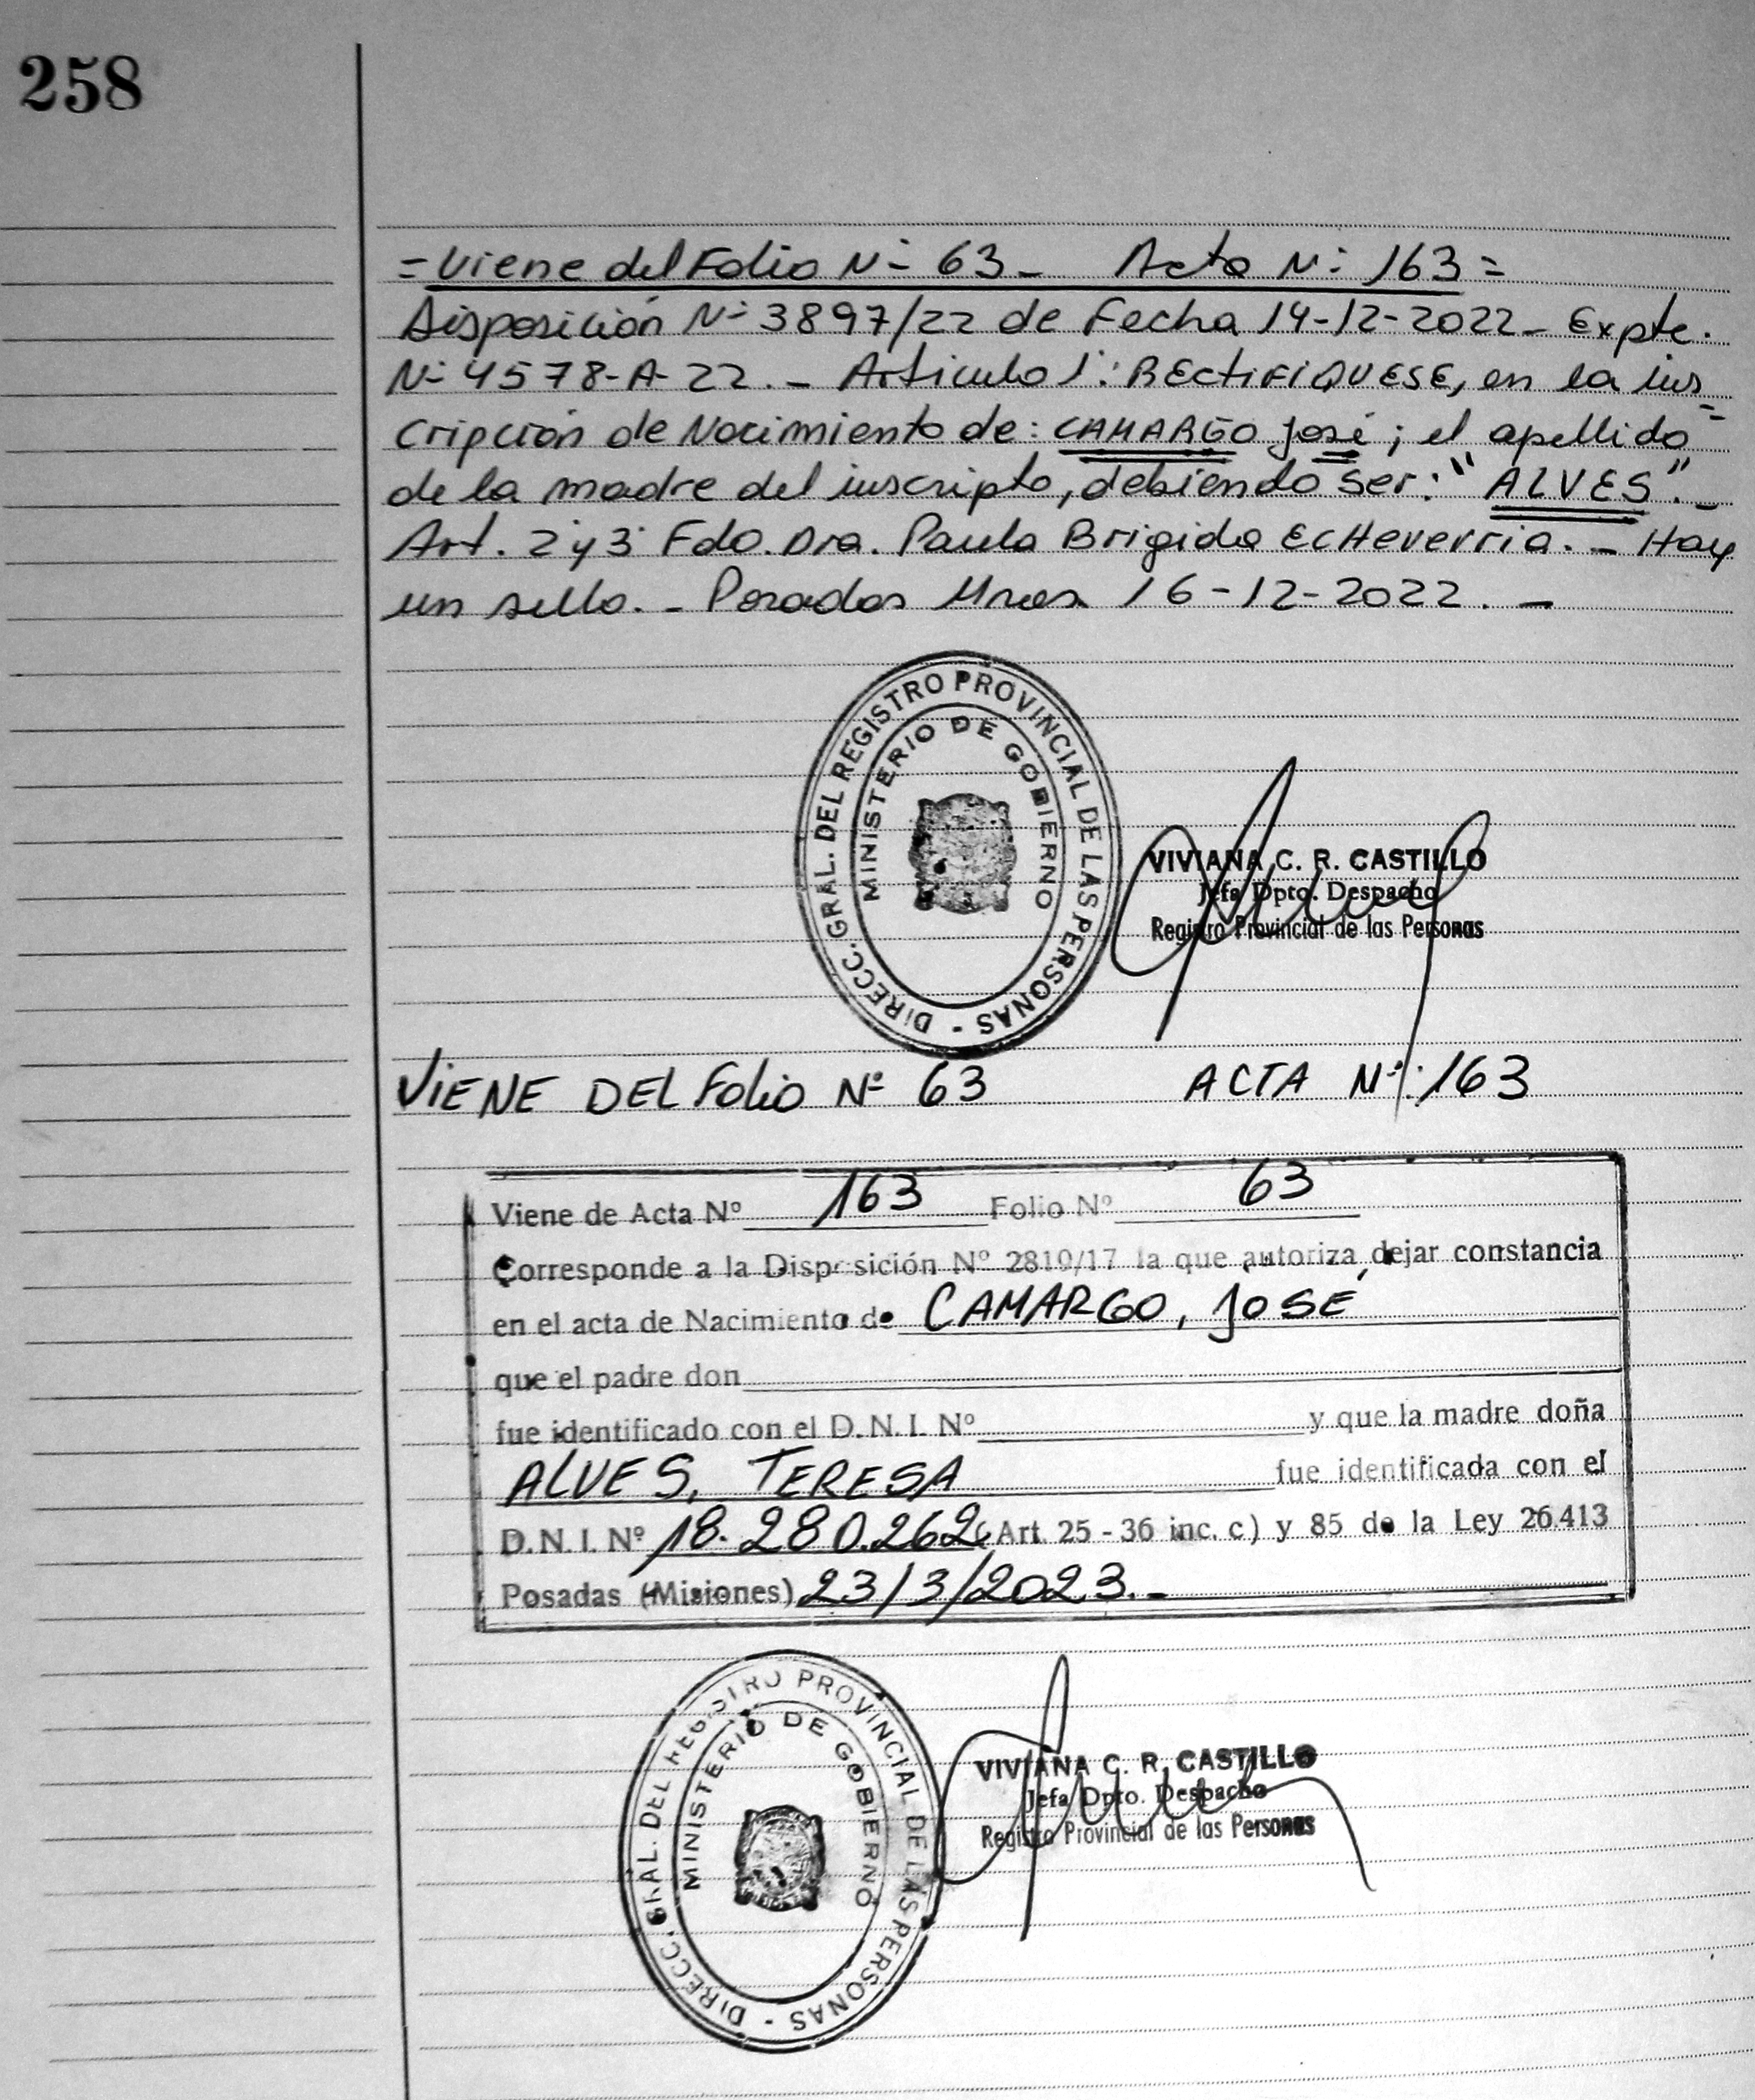 258
=Viene del Folio Nº 63- Acta Nº 163=
Disposición Nº 3897/22 de Fecha 14-12-2022- Expte.
Nº 4578-A-22.- Artículo 1º: RECTIFIQUESE, en la ins=
cripción de Nacimiento de: CAMARGO José; el apellido
de la madre del inscripto, debiendo ser: "ALVES".-
Art. 2º y 3º Fdo. Dra. Paula Brigida Echeverria.- Hay
un sello.- Posadas Mnes 16-12-2022.-
DIRECC. GRAL. DEL REGISTRO PROVINCIAL DE LAS PERSONAS -
MINISTERIO DE GOBIERNO
VIVIANA C. R. CASTILLO
Jefa Dpto. Despacho
Registro Provincial de las Personas
VIENE DEL Folio Nº 63 ACTA Nº: 163
Viene de Acta Nº 163 Folio Nº 63
Corresponde a la Disposición Nº 2819/17 la que autoriza dejar constancia
en el acta de Nacimiento de CAMARGO, JOSÉ
que el padre don
fue identificado con el D.N.I. Nº y que la madre doña
ALVES, TERESA fue identificada con el
D.N.I. Nº 18.280.262 (Art. 25 - 36 inc. c) y 85 de la Ley 26.413
Posadas (Misiones) 23/3/2023.-
DIRECC. GRAL. DEL REGISTRO PROVINCIAL DE LAS PERSONAS -
MINISTERIO DE GOBIERNO
VIVIANA C. R. CASTILLO
Jefa Dpto. Despacho
Registro Provincial de las Personas